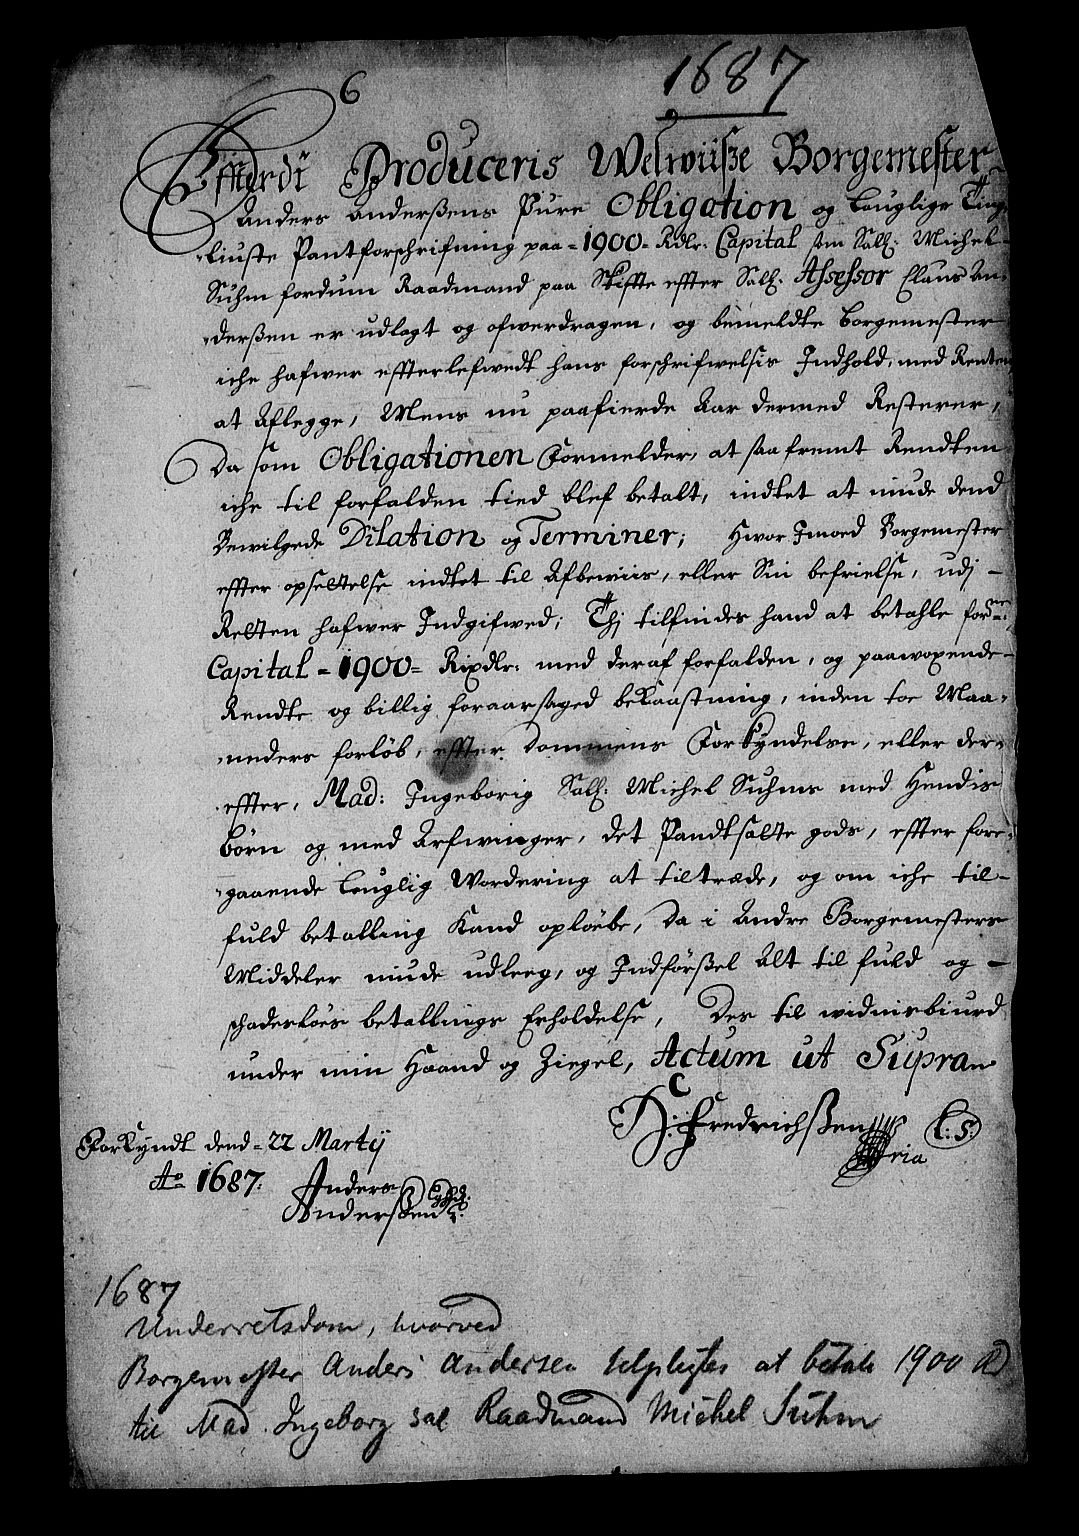 6
1687
Effterdj Produceris Welwiisze Borgemester
Anders Anderszens Pure Obligation og Lougligr Ting-
liuste Pantforschrifning paa = 1900 = Rdlr: Capital som Sall: Michel
Suhm fordum Raadmand paa Skiffte effter Sall: Assessor Claus An-
derszen er udlagt og ofwerdragen, og bemeldte Borgemester
iche hafwer effterlefwedt hans forschrifwelsis Indhold, med Renten
at Aflegge, Mens nu paafierde Aar dermed Resterer,
Da som Obligationen Formelder, at saafremt Rendten
iche til forfalden tied blef betalt, indtet at niude dend
Bewilgede Dilation og Terminer; Hwor Imoed Borgemester
effter opsettelse indtet til Afbewiis, eller Sin befrielse, udj
Retten hafwer Indgifwed; Thj tilfindes hand at betahle fornne:
Capital = 1900 = Rixdlr: med deraf forfalden, og paawoxende
Rendte og billig foraarsaged bekaastning, inden toe Maa-
neders forløb, effter Dommens Forkyndelse, eller der-
effter, Mad: Ingeborig Sall: Michel Suhms med Hendis
børn og med Arfwinger, det Pandtsatte gods, effter fore-
gaaende Louglig Wordering at tiltræde, og om iche til-
fuld betalling Kand opløebe, Da i Andre Borgemesters
Middeler niude udleeg, og Indførszel Alt til fuld og
schadesløes betallings Erholdelse, Des til widnisbiurd
under min Haand og Ziegel, Actum ut Supra
H: Fredrichszen
L: S:
Forkyndt dend = 22 Martij
Ao 1687:
Anders
Anderszen
1687
Underretsdom, hvorved
Borgemester Anders Andersen tilpligtes at betale 1900 Rd
til Mad. Ingeborg sal Raadmand Michel Suhm